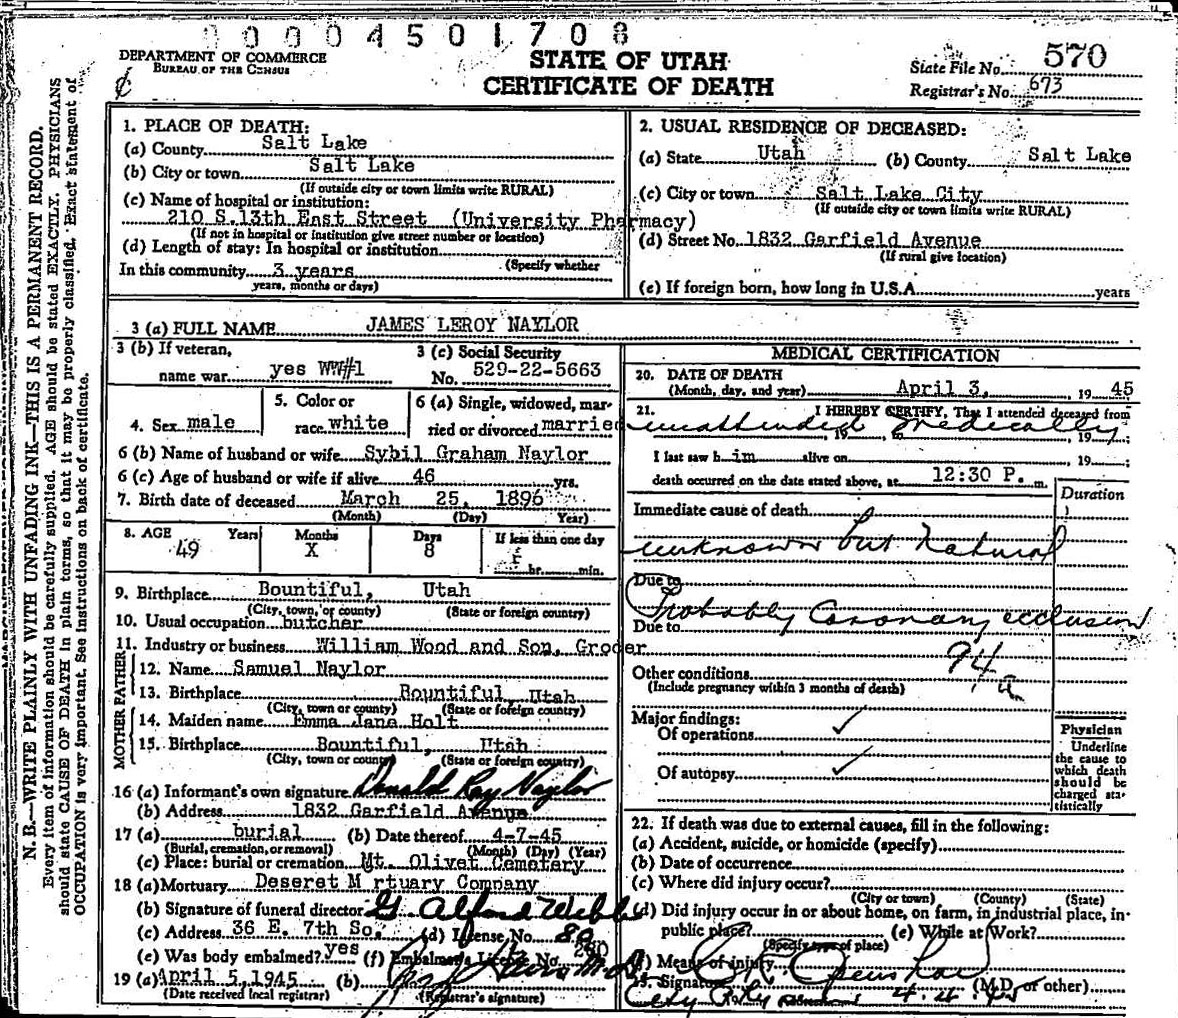 00004501708
DEPARTMENT OF COMMERCE
BUREAU OF THE CENSUS
STATE OF UTAH
CERTIFICATE OF DEATH
State File No. 570
Registrar's No. 673
N. B.—WRITE PLAINLY WITH UNFADING INK—THIS IS A PERMANENT RECORD.
Every item of information should be carefully supplied. AGE should be stated EXACTLY. PHYSICIANS
should state CAUSE OF DEATH in plain terms, so that it may be properly classified. Exact statement of
OCCUPATION is very important. See instructions on back of certificate.
1. PLACE OF DEATH:
(a) County Salt Lake
(b) City or town Salt Lake
(If outside city or town limits write RURAL)
(c) Name of hospital or institution:
210 S.13th East Street (University Pharmacy)
(If not in hospital or institution give street number or location)
(d) Length of stay: In hospital or institution
(Specify whether
In this community 3 years
years, months or days)
2. USUAL RESIDENCE OF DECEASED:
(a) State Utah (b) County Salt Lake
(c) City or town Salt Lake City
(If outside city or town limits write RURAL)
(d) Street No. 1832 Garfield Avenue
(If rural give location)
(e) If foreign born, how long in U.S.A. years
3 (a) FULL NAME JAMES LEROY NAYLOR
3 (b) If veteran, name war yes WW#1
3 (c) Social Security No. 529-22-5663
4. Sex male
5. Color or race white
6 (a) Single, widowed, married or divorced married
6 (b) Name of husband or wife Sybil Graham Naylor
6 (c) Age of husband or wife if alive 46 yrs.
7. Birth date of deceased March 25, 1896
(Month) (Day) Year)
8. AGE Years Months Days If less than one day
49 X 8 hr. min.
9. Birthplace Bountiful, Utah
(City, town, or county) (State or foreign country)
10. Usual occupation butcher
11. Industry or business William Wood and Son, Grocer
FATHER
12. Name Samuel Naylor
13. Birthplace Bountiful Utah
(City, town or county) (State or foreign country)
MOTHER
14. Maiden name Emma Jane Holt
15. Birthplace Bountiful, Utah
(City, town or county) (State or foreign country)
16 (a) Informant's own signature Donald Ray Naylor
(b) Address 1832 Garfield Avenue
17 (a) burial (b) Date thereof 4-7-45
(Burial, cremation, or removal) (Month) (Day) (Year)
(c) Place: burial or cremation Mt. Olivet Cemetery
18 (a) Mortuary Deseret M rtuary Company
(b) Signature of funeral director G. Alford Webb
(c) Address 36 E. 7th So. (d) License No. 80
(e) Was body embalmed? yes (f) Embalmer's License No.
19 (a) April 5, 1945 (b)
(Date received local registrar) (Registrar's signature)
MEDICAL CERTIFICATION
20. DATE OF DEATH
(Month, day, and year) April 3, 19 45
21. I HEREBY CERTIFY, That I attended deceased from
unattended medically, 19 to , 19 ;
I last saw h im alive on , 19 ;
death occurred on the date stated above, at 12:30 P. m.
Duration
Immediate cause of death
unknown but natural
Due to
Probably Coronary occlusion
Due to
94a
Other conditions
(Include pregnancy within 3 months of death)
Major findings:
Of operations ✓
Of autopsy ✓
Physician
Underline
the cause to
which death
should be
charged sta-
tistically
22. If death was due to external causes, fill in the following:
(a) Accident, suicide, or homicide (specify)
(b) Date of occurrence
(c) Where did injury occur?
(City or town) (County) (State)
(d) Did injury occur in or about home, on farm, in industrial place, in-
public place? (e) While at Work?
(Specify type of place)
(f) Means of injury
23. Signature (M.D. or other)
City